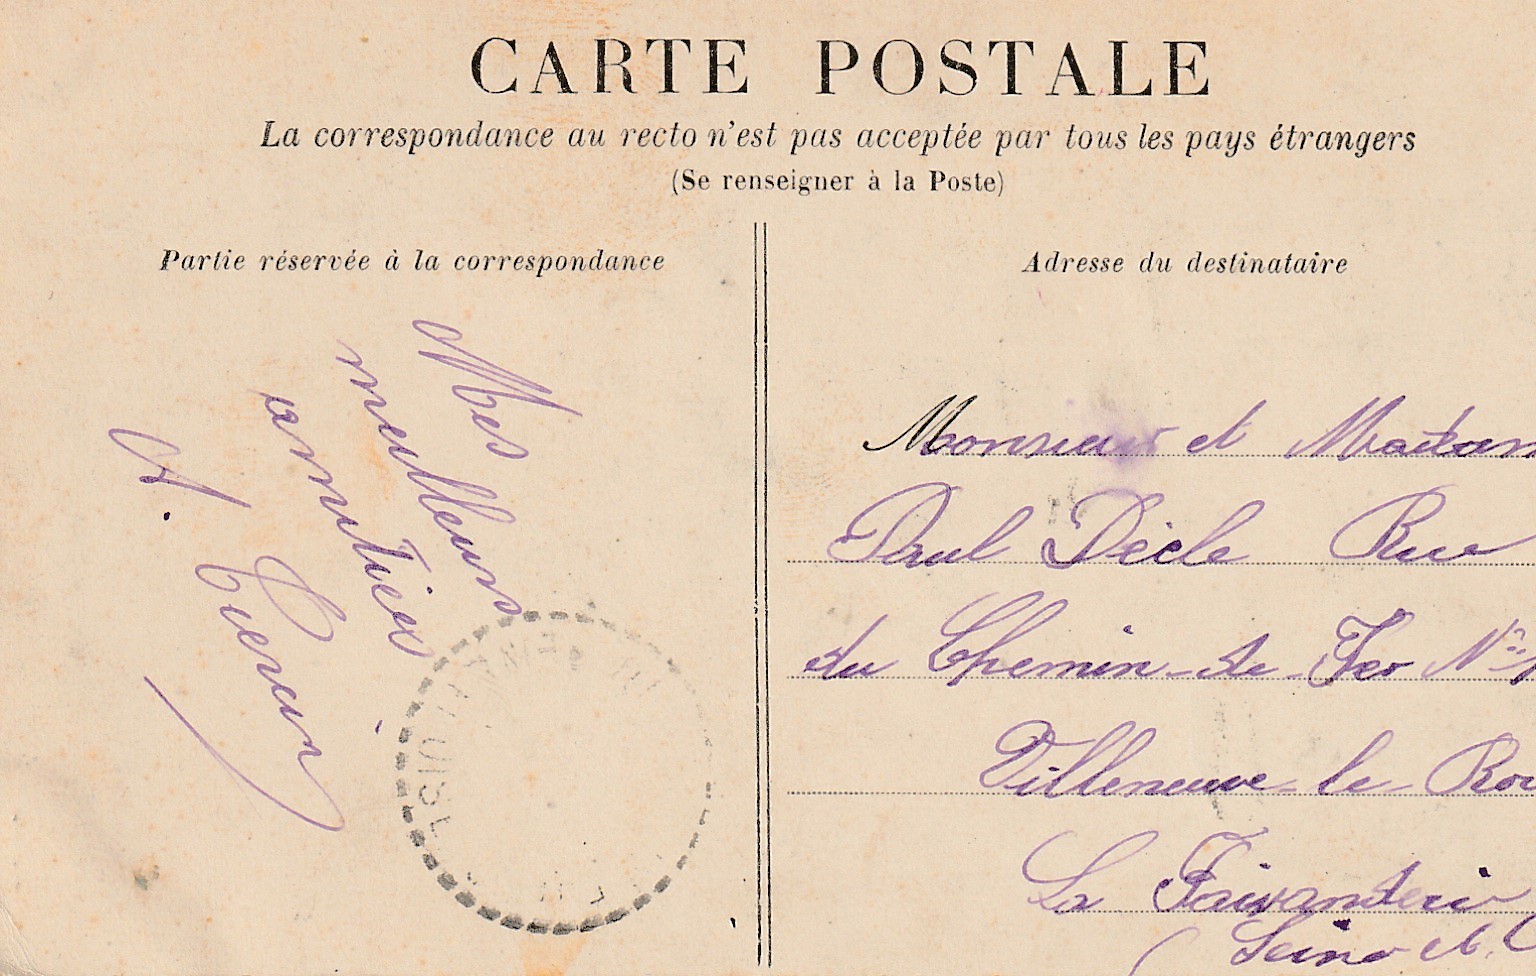 CARTE POSTALE
La correspondance au recto n'est pas acceptée par tous les pays étrangers
(Se renseigner à la Poste)
Partie réservée à la correspondance
Mes
meilleurs
amitiés
A.
Adresse du destinataire
Monsieur et Madam
Paul Dècle Rue
du Chemin-de-Fer N°
Villeneuve-le-Ro
La Faisanderie
(Seine et